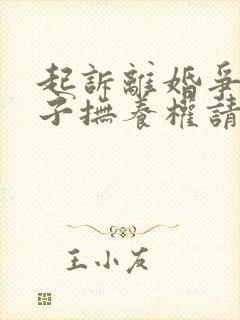 起訴離婚爭
子撫養權請
王小友